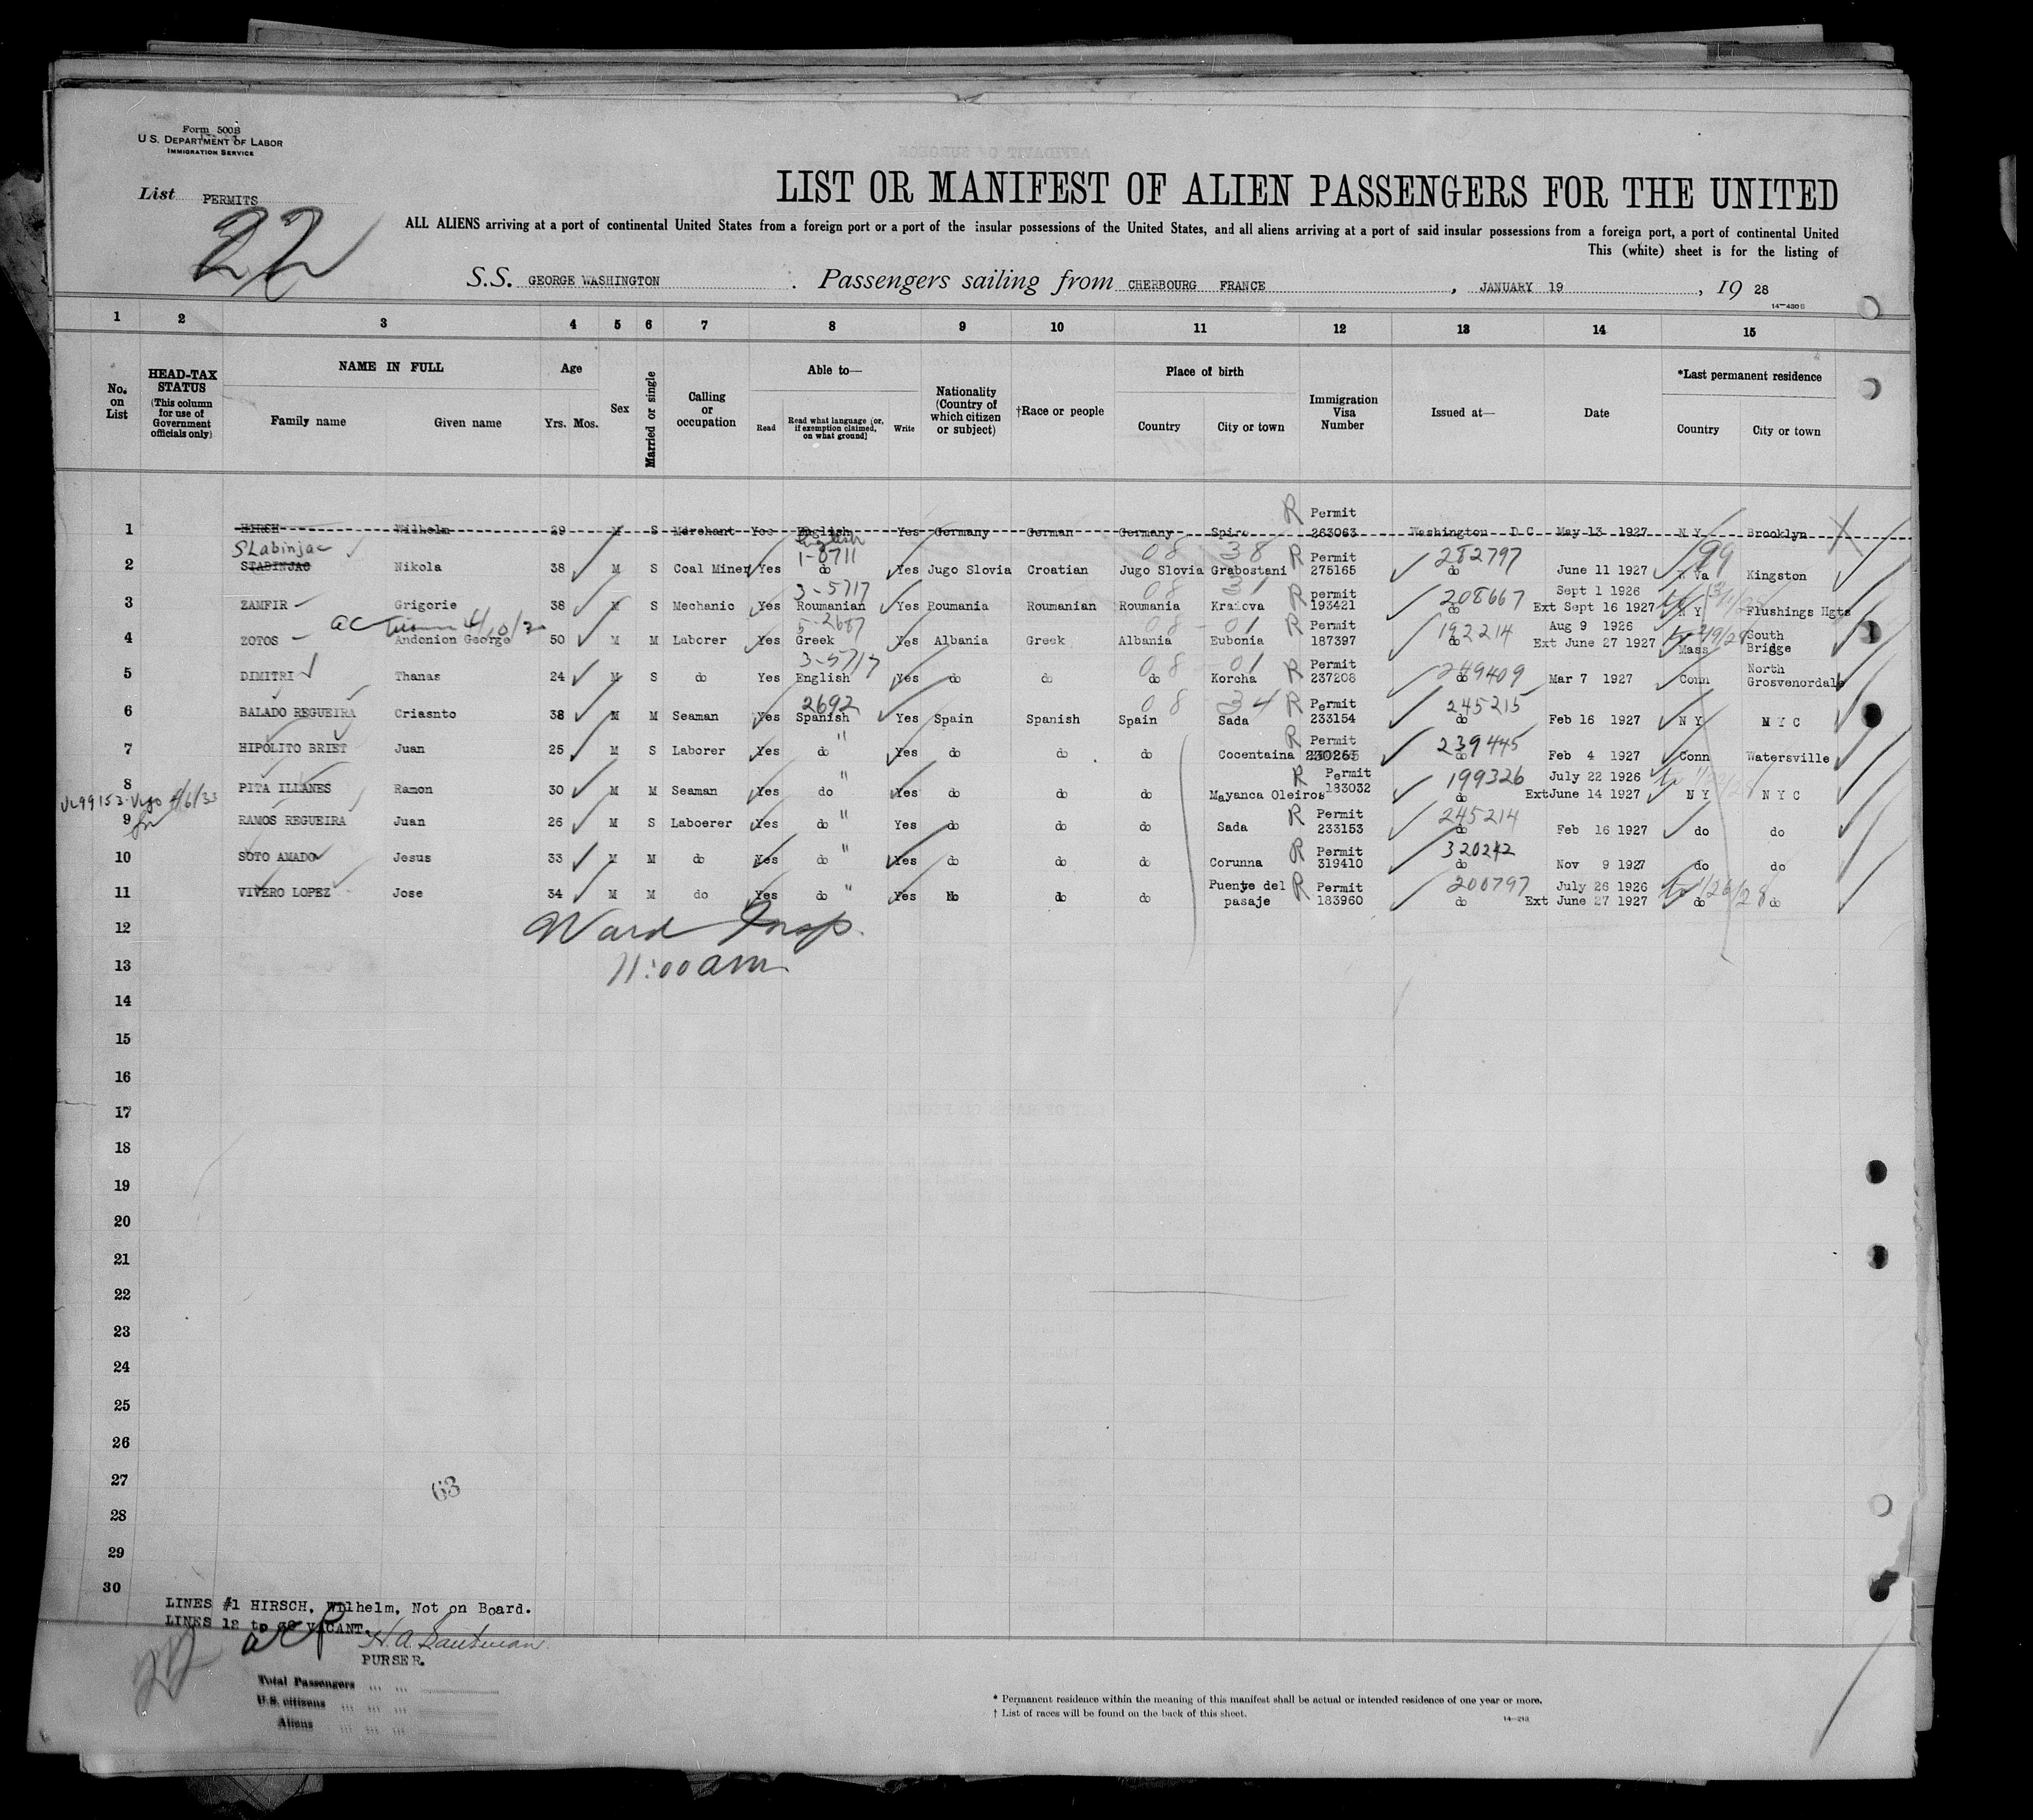 Form 500B
U.S. DEPARTMENT OF LABOR
IMMIGRATION SERVICE
List PERMITS
22
LIST OR MANIFEST OF ALIEN PASSENGERS FOR THE UNITED
ALL ALIENS arriving at a port of continental United States from a foreign port or a part of the insular possessions of the United States, and all aliens arriving at a port of said insular possessions from a foreign port, a port of continental United
This (white) sheet is for the listing of
S.S. GEORGE WASHINGTON . Passengers sailing from CHERBOURG FRANCE , JANUARY 19 , 19 28
1 2 3 4 5 6 7 8 9 10 11 12 13 14 15
No. on List
HEAD-TAX STATUS (This column for use of Government officials only)
NAME IN FULL
Family name Given name
Age
Yrs. Mos.
Sex
Married or single
Calling or occupation
Able to—
Read
Read what language (or, if exemption claimed, on what ground)
Write
Nationality (Country of which citizen or subject)
†Race or people
Place of birth
Country City or town
Immigration Visa Number
Issued at—
Date
*Last permanent residence
Country City or town
R Permit
1 HIRSH Wilhelm 29 M S Merchant Yes English Yes Germany German Germany Spire 263063 Washington D C May 13 1927 N Y Brooklyn
SLabinjac English 1-8711 08 38 R Permit 282797 99
2 STABINJAC Nikola 38 M S Coal Miner Yes do Yes Jugo Slovia Croatian Jugo Slovia Grabostani 275165 do June 11 1927 W Va Kingston
3-5717 08 31 R permit 208667 Sept 1 1926
3 ZAMFIR Grigorie 38 M S Mechanic Yes Roumanian Yes Roumania Roumanian Roumania Kraiova 193421 do Ext Sept 16 1927 N Y Flushings Hgts
5-2687 08-01 R Permit 192214 Aug 9 1926 South
4 ZOTOS Andonion George 50 M M Laborer Yes Greek Yes Albania Greek Albania Eubonia 187397 do Ext June 27 1927 Mass Bridge
3-5717 08 01 R Permit North
5 DIMITRI Thanas 24 M S do Yes English Yes do do do Korcha 237208 do Mar 7 1927 Conn Grosvenordale
2692 08 34 R Permit 245215
6 BALADO REGUEIRA Criasnto 38 M M Seaman Yes Spanish Yes Spain Spanish Spain Sada 233154 do Feb 16 1927 N Y N Y C
R Permit 239445
7 HIPOLITO BRIET Juan 25 M S Laborer Yes do " Yes do do do Cocentaina 230265 do Feb 4 1927 Conn Watersville
R Permit 199326 July 22 1926
8 PITA ILLANES Ramon 30 M M Seaman Yes do " Yes do do do Mayanca Oleiros 183032 do Ext June 14 1927 N Y N Y C
R Permit 245214
9 RAMOS REGUEIRA Juan 26 M S Laboerer Yes do " Yes do do do Sada 233153 do Feb 16 1927 do do
R Permit 320242
10 SOTO AMADO Jesus 33 M M do Yes do " Yes do do do Corunna 319410 do Nov 9 1927 do do
Puente del R Permit 200797 July 26 1926 1/26/28
11 VIVERO LOPEZ Jose 34 M M do Yes do " Yes do do do pasaje 183960 do Ext June 27 1927 do do
12 Ward Insp.
13 11:00 am
14
15
16
17
18
19
20
21
22
23
24
25
26
27
63
28
29
30
LINES #1 HIRSCH, Wilhelm, Not on Board.
LINES 12 to 30 VACANT.
PURSER.
22
Total Passengers
U.S. citizens
Aliens
* Permanent residence within the meaning of this manifest shall be actual or intended residence of one year or more.
† List of races will be found on the back of this sheet.
14—213